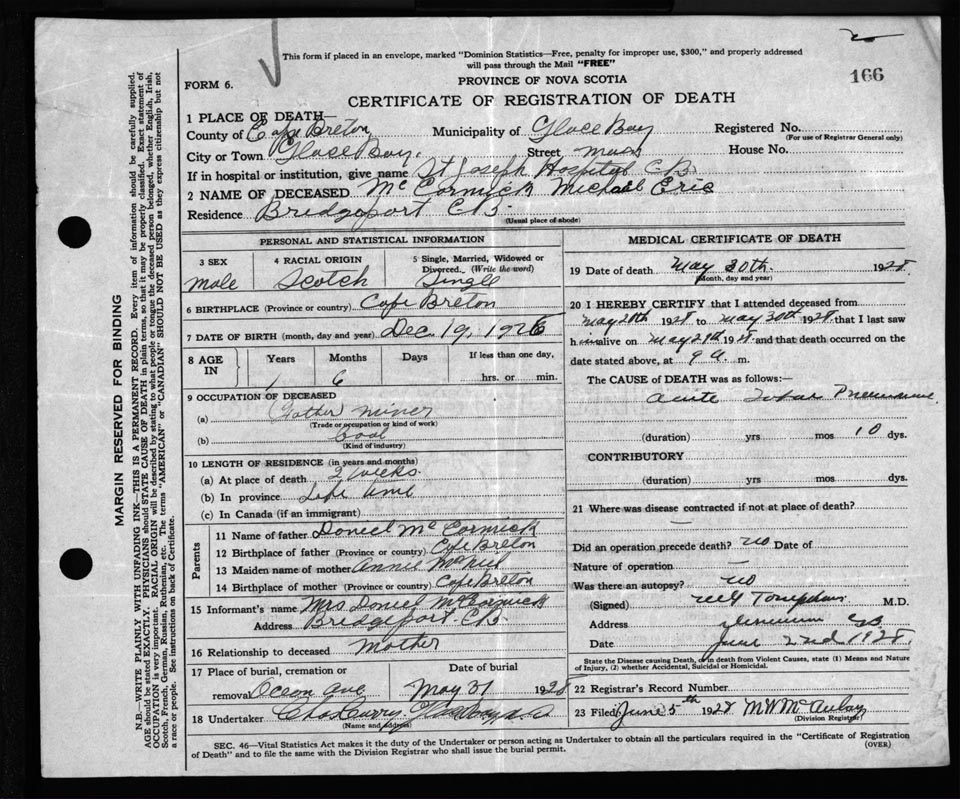 This form if placed in an envelope, marked "Dominion Statistics—Free, penalty for improper use, $300," and properly addressed
will pass through the Mail "FREE"
166
FORM 6.
PROVINCE OF NOVA SCOTIA
CERTIFICATE OF REGISTRATION OF DEATH
1 PLACE OF DEATH—
County of Cape Breton Municipality of Glace Bay Registered No.
(For use of Registrar General only)
City or Town Glace Bay. Street Main House No.
If in hospital or institution, give name St Joseph Hospital C.B.
2 NAME OF DECEASED McCormick Michael Eric
Residence Bridgeport C.B.
(Usual place of abode)
PERSONAL AND STATISTICAL INFORMATION
3 SEX 4 RACIAL ORIGIN 5 Single, Married, Widowed or
Divorced. (Write the word)
Male Scotch Single
6 BIRTHPLACE (Province or country) Cape Breton
7 DATE OF BIRTH (month, day and year) Dec 19, 1926
8 AGE IN Years Months Days If less than one day,
1 6 hrs. or min.
9 OCCUPATION OF DECEASED
(a) Father miner
(Trade or occupation or kind of work)
(b) Coal
(Kind of industry)
10 LENGTH OF RESIDENCE (in years and months)
(a) At place of death 2 weeks.
(b) In province Life time
(c) In Canada (if an immigrant)
Parents
11 Name of father Daniel McCormick
12 Birthplace of father (Province or country) Cape Breton
13 Maiden name of mother Annie McNeil
14 Birthplace of mother (Province or country) Cape Breton
15 Informant's name Mrs Daniel McCormick
Address Bridgeport. C.B.
16 Relationship to deceased Mother
17 Place of burial, cremation or Date of burial
removal Ocean Ave May 31 1928
18 Undertaker Chas Curry Glace Bay
(Name and address)
MEDICAL CERTIFICATE OF DEATH
19 Date of death May 30th. 1928
(Month, day and year)
20 I HEREBY CERTIFY that I attended deceased from
May 28th 1928 to May 30th 1928 that I last saw
him alive on May 29th 1928 and that death occurred on the
date stated above, at 9 a. m.
The CAUSE of DEATH was as follows:—
Acute Lobar Pneumonia
(duration) yrs mos 10 dys.
CONTRIBUTORY
(duration) yrs mos dys.
21 Where was disease contracted if not at place of death?
—
Did an operation precede death? no Date of
Nature of operation —
Was there an autopsy? no
(Signed) M.D.
Address
Date June 2nd 1928.
State the Disease causing Death, or in death from Violent Causes, state (1) Means and Nature
of Injury, (2) whether Accidental, Suicidal or Homicidal.
22 Registrar's Record Number
23 Filed June 5th 1928 M W McAulay
(Division Registrar)
SEC. 46—Vital Statistics Act makes it the duty of the Undertaker or person acting as Undertaker to obtain all the particulars required in the "Certificate of Registration
of Death" and to file the same with the Division Registrar who shall issue the burial permit.
(OVER)
MARGIN RESERVED FOR BINDING
N.B.—WRITE PLAINLY WITH UNFADING INK—THIS IS A PERMANENT RECORD. Every item of information should be carefully supplied.
AGE should be stated EXACTLY. PHYSICIANS should STATE CAUSE OF DEATH in plain terms, so that it may be properly classified. Exact statement of
OCCUPATION is very important. RACIAL ORIGIN will be described by stating to what people or tongue the deceased person belonged, whether English, Irish,
Scotch, French, German, Russian, Ruthenian, etc. The terms "AMERICAN" or "CANADIAN" SHOULD NOT BE USED as they express citizenship but not
a race or people. See instructions on back of Certificate.